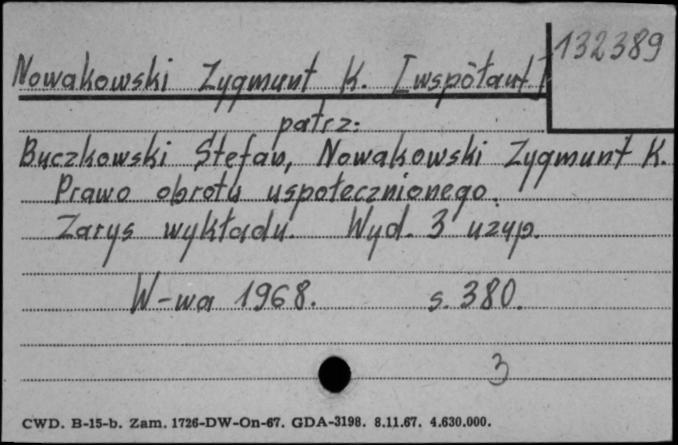 132389
Nowakowski Zygmunt K. [współaut.]
patrz:
Buczkowski Stefan, Nowakowski Zygmunt K.
Prawo obrotu uspołecznionego.
Zarys wykładu. Wyd. 3 uzup.
W-wa 1968. s. 380.
3
CWD. B-15-b. Zam. 1726-DW-On-67. GDA-3198. 8.11.67. 4.630.000.